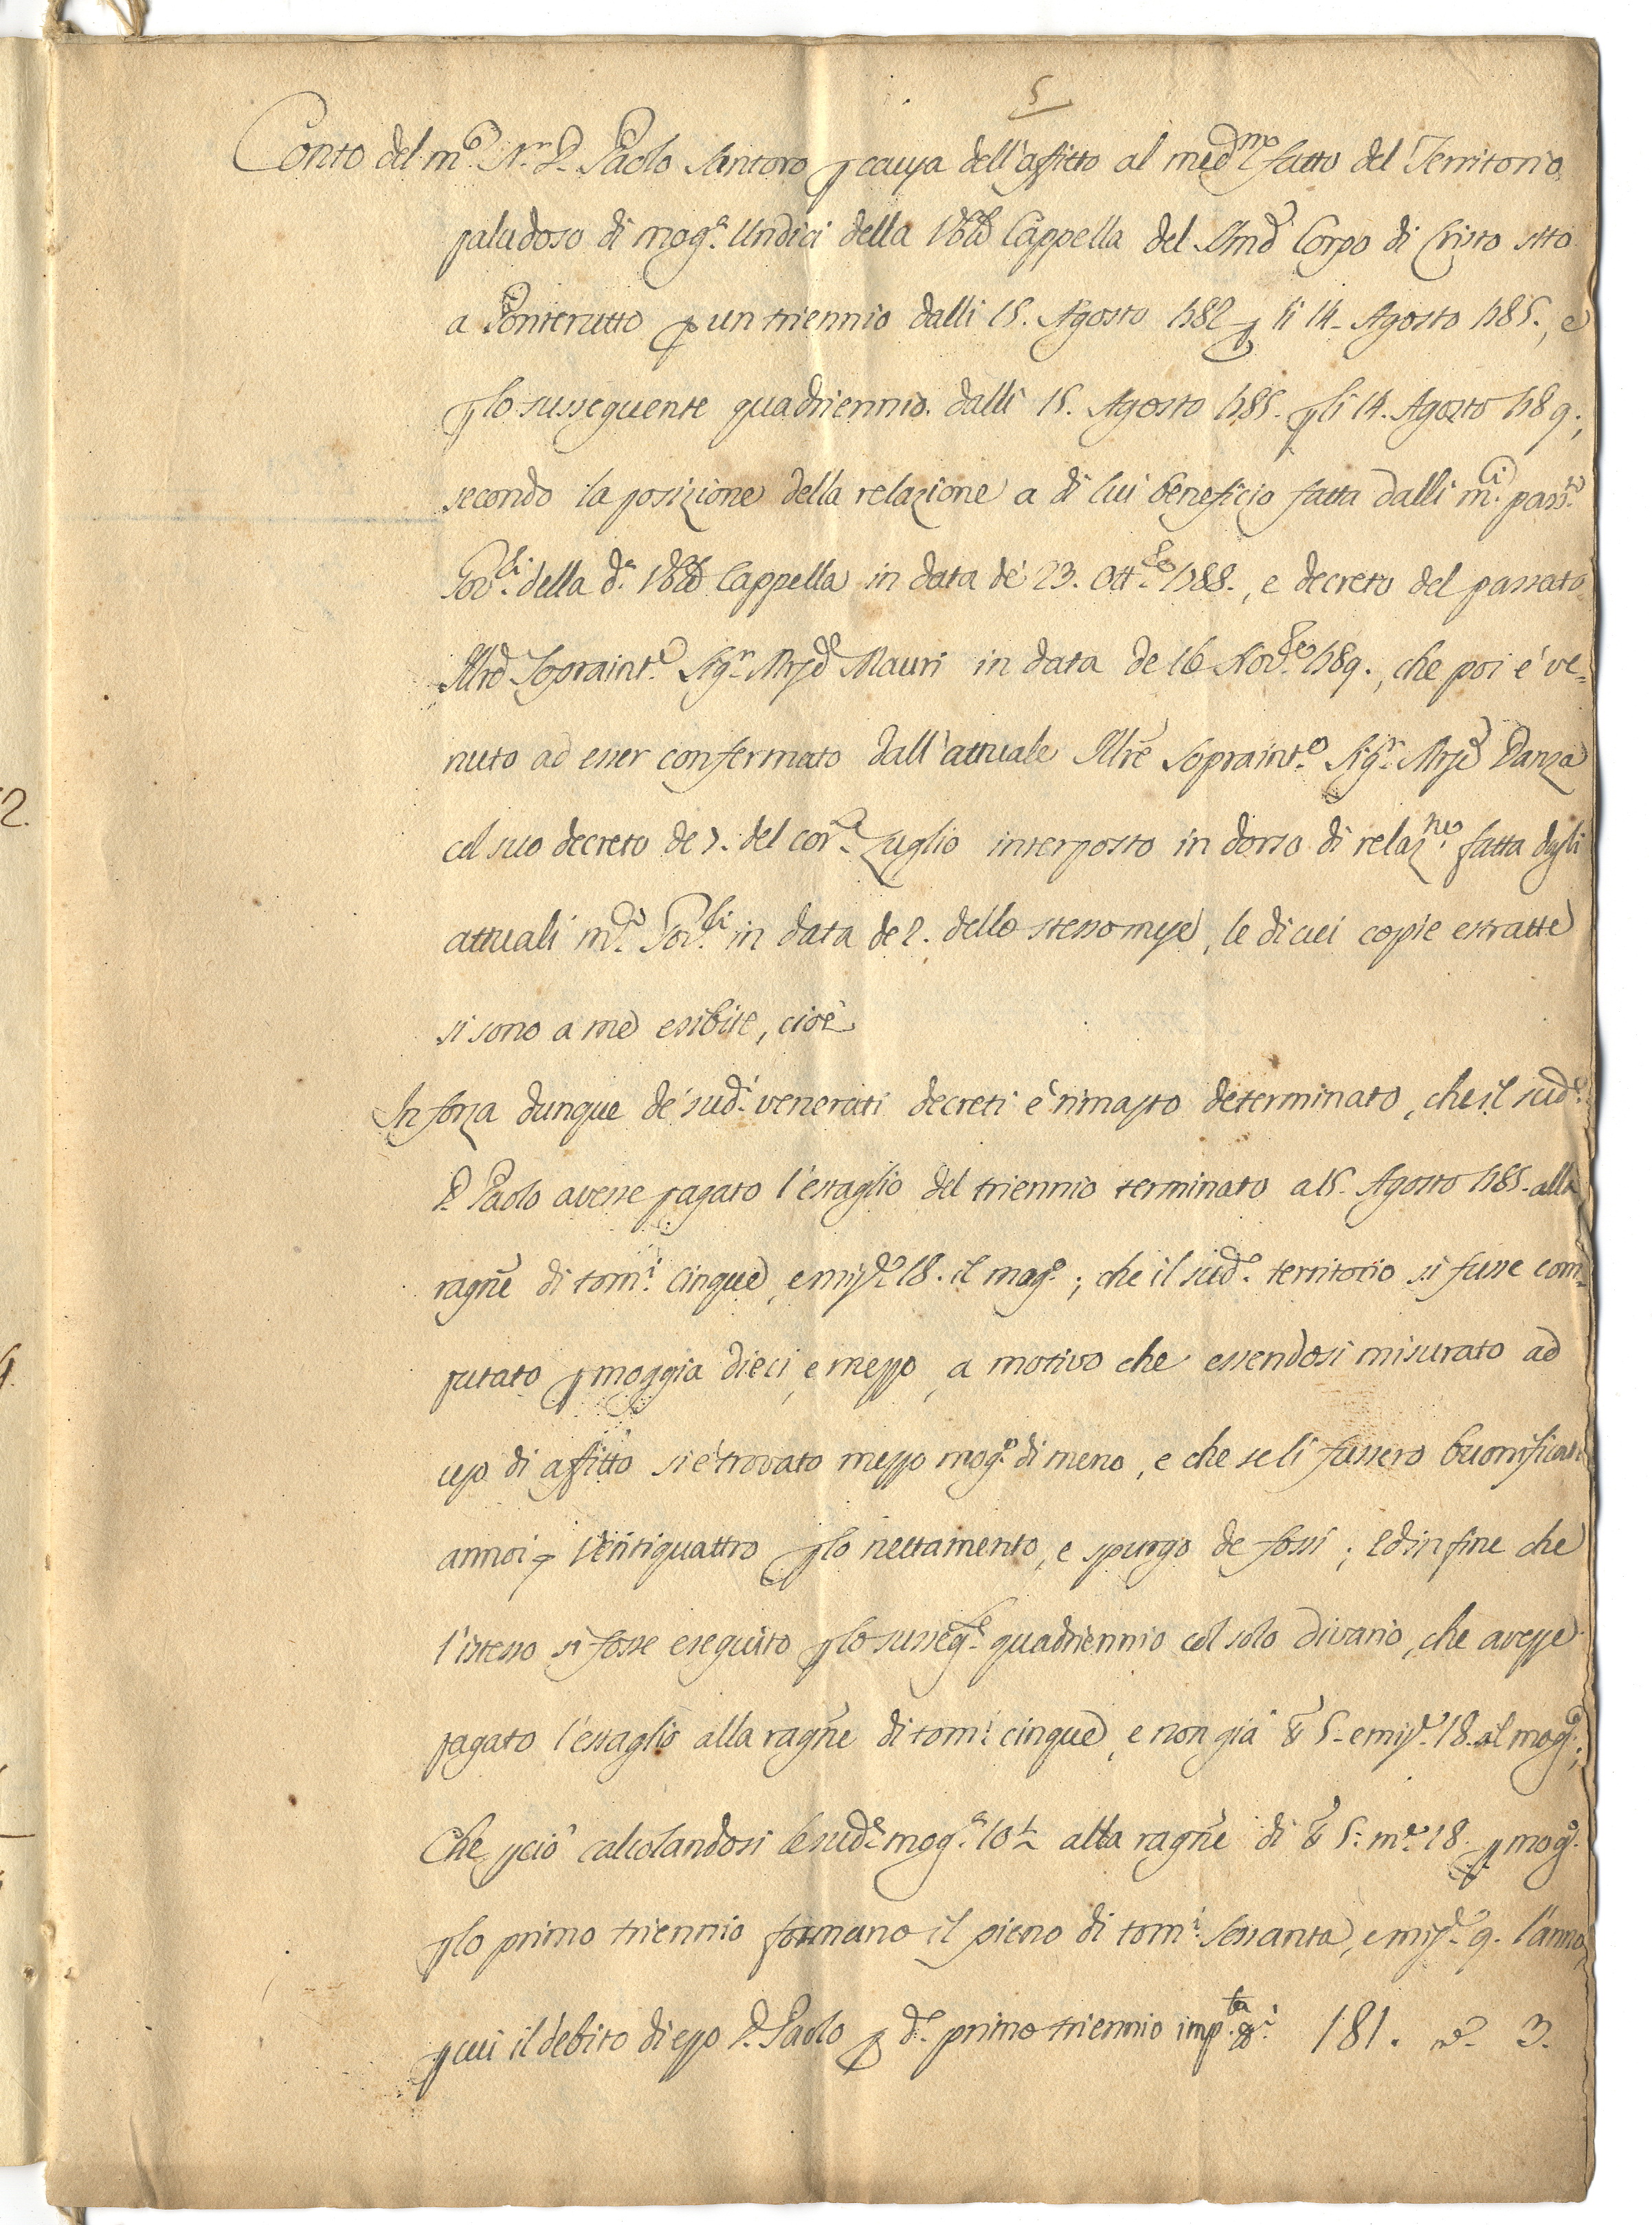 5
Conto del m.co N.r D. Paolo Santoro p causa dell'affitto al med.mo fatto del Territorio
paludoso di mog.a Undici della Vble Cappella del SSmo Corpo di Cristo sito
a Ponterutto p un triennio dalli 15. Agosto 1782 p li 14. Agosto 1785., e
p lo susseguente quadriennio dalli 15. Agosto 1785. p li 14. Agosto 1789;
secondo la posizione della relazione a di lui beneficio fatta dalli m.ci pass.ti
Gov.ri della d.a Vble Cappella in data de' 23. Ott.bre 1788., e decreto del passato
Illre Sopraint.e Sig.r Mrse Mauri in data de 16 Nov.bre 1789., che poi è ve=
nuto ad esser confermato dall'attuale Illre Sopraint.e Sig.r Mrse Danza
col suo decreto de 7. del cor.e Luglio interposto in dorso di relaz.ne fatta dagli
attuali m.ci Gov.ri in data de 2. dello stesso mese, le di cui copie estratte
si sono a me esibite, cioè
In forza dunque de' sud.i venerati decreti è rimasto determinato, che il sud.o
D. Paolo avesse pagato l'estaglio del triennio terminato a 15. Agosto 1785. alla
ragne di tom.i cinque, e mis.e 18. il mog.o; che il sud.o territorio si fusse com=
putato p moggia dieci, e mezzo, a motivo che essendosi misurato ad
uso di affitto si è trovato mezzo mog.o di meno, e che se li fussero buonificati
annoi ventiquattro p lo nettamento, e spurgo de fossi; Ed in fine che
l'istesso si fosse eseguito p lo susseg.e quadriennio col solo divario, che avesse
pagato l'estaglio alla ragne di tom.i cinque, e non già t.a 5. e mis.e 18. il mog.o;
Che p ciò calcolandosi le sud.e mog.a 10½ alla ragne di t.a 5: m.e 18. p mog.o
p lo primo triennio formano il pieno di tom.i sessanta, e mis.e 9. l'anno,
p cui il debito di esso D. Paolo p d.o primo triennio imp.ta t.a 181. m.e 3.